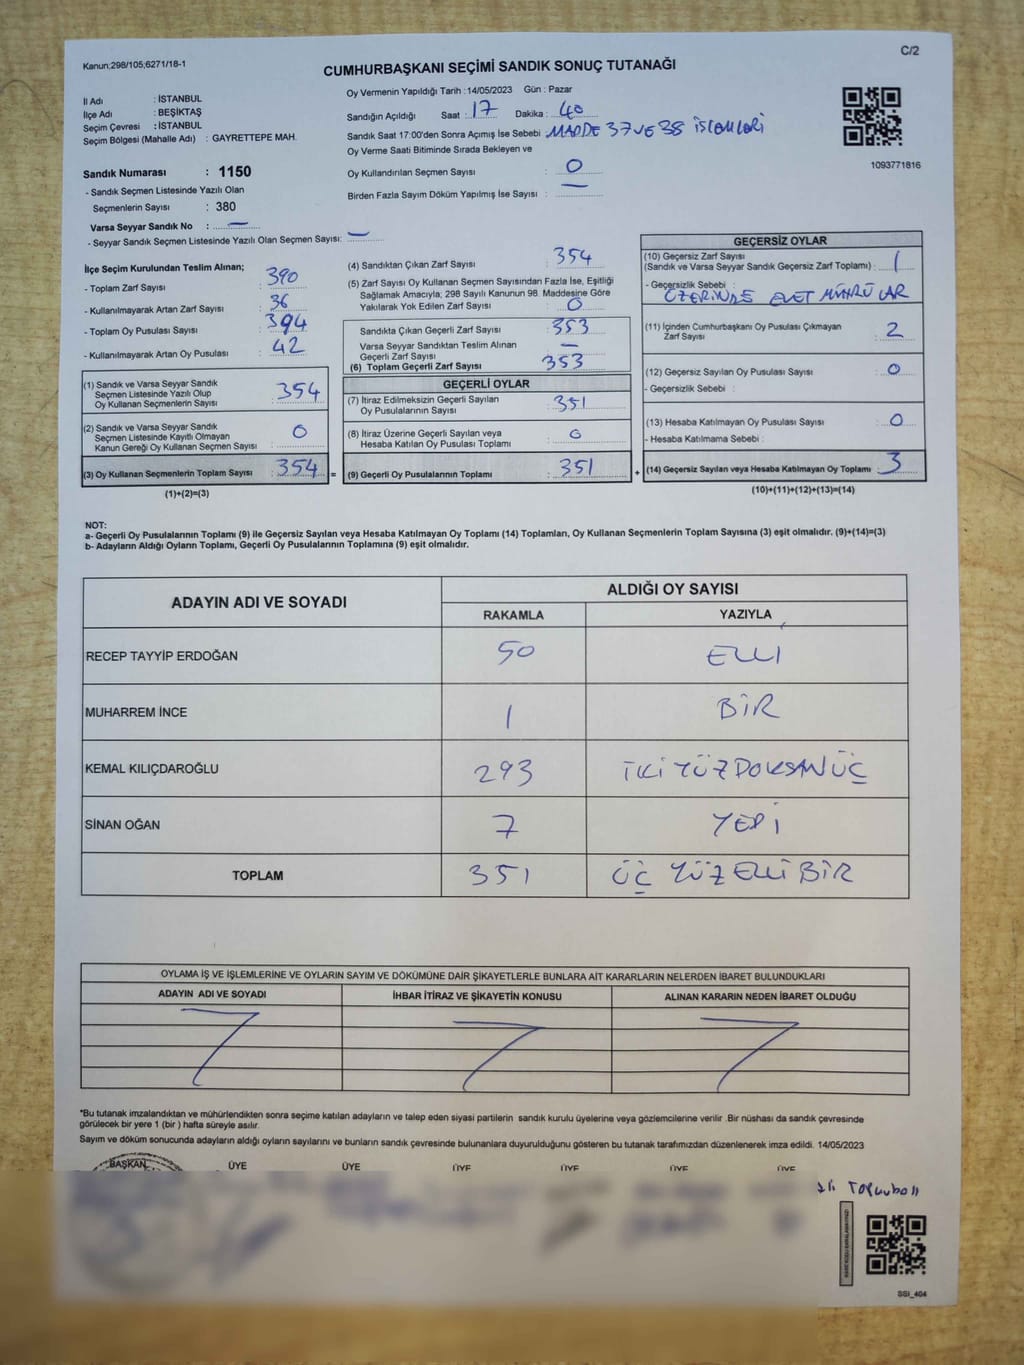 C/2
Kanun:298/105;6271/18-1
CUMHURBAŞKANI SEÇİMİ SANDIK SONUÇ TUTANAĞI
İl Adı : İSTANBUL
İlçe Adı : BEŞİKTAŞ
Seçim Çevresi : İSTANBUL
Seçim Bölgesi (Mahalle Adı) : GAYRETTEPE MAH.
Sandık Numarası : 1150
- Sandık Seçmen Listesinde Yazılı Olan
Seçmenlerin Sayısı : 380
Varsa Seyyar Sandık No : —
- Seyyar Sandık Seçmen Listesinde Yazılı Olan Seçmen Sayısı: —
Oy Vermenin Yapıldığı Tarih :14/05/2023 Gün : Pazar
Sandığın Açıldığı Saat : 17 Dakika : 40
Sandık Saat 17:00'den Sonra Açımış İse Sebebi : MADDE 37 VE 38 İŞLEMLERİ
Oy Verme Saati Bitiminde Sırada Bekleyen ve
Oy Kullandırılan Seçmen Sayısı : 0
Birden Fazla Sayım Döküm Yapılmış İse Sayısı : —
1093771816
İlçe Seçim Kurulundan Teslim Alınan;
- Toplam Zarf Sayısı : 390
- Kullanılmayarak Artan Zarf Sayısı : 36
- Toplam Oy Pusulası Sayısı : 394
- Kullanılmayarak Artan Oy Pusulası : 42
(1) Sandık ve Varsa Seyyar Sandık
Seçmen Listesinde Yazılı Olup
Oy Kullanan Seçmenlerin Sayısı : 354
(2) Sandık ve Varsa Seyyar Sandık
Seçmen Listesinde Kayıtlı Olmayan
Kanun Gereği Oy Kullanan Seçmen Sayısı : 0
(3) Oy Kullanan Seçmenlerin Toplam Sayısı : 354 =
(1)+(2)=(3)
(4) Sandıktan Çıkan Zarf Sayısı : 354
(5) Zarf Sayısı Oy Kullanan Seçmen Sayısından Fazla İse, Eşitliği
Sağlamak Amacıyla; 298 Sayılı Kanunun 98. Maddesine Göre
Yakılarak Yok Edilen Zarf Sayısı : 0
Sandıkta Çıkan Geçerli Zarf Sayısı : 353
Varsa Seyyar Sandıktan Teslim Alınan
Geçerli Zarf Sayısı : —
(6) Toplam Geçerli Zarf Sayısı : 353
GEÇERLİ OYLAR
(7) İtiraz Edilmeksizin Geçerli Sayılan
Oy Pusulalarının Sayısı : 351
(8) İtiraz Üzerine Geçerli Sayılan veya
Hesaba Katılan Oy Pusulası Toplamı : 0
(9) Geçerli Oy Pusulalarının Toplamı : 351 +
GEÇERSİZ OYLAR
(10) Geçersiz Zarf Sayısı
(Sandık ve Varsa Seyyar Sandık Geçersiz Zarf Toplamı) : 1
- Geçersizlik Sebebi :
ÜZERİNDE EVET MÜHRÜ VAR
(11) İçinden Cumhurbaşkanı Oy Pusulası Çıkmayan
Zarf Sayısı : 2
(12) Geçersiz Sayılan Oy Pusulası Sayısı : 0
- Geçersizlik Sebebi :
(13) Hesaba Katılmayan Oy Pusulası Sayısı : 0
- Hesaba Katılmama Sebebi :
(14) Geçersiz Sayılan veya Hesaba Katılmayan Oy Toplamı : 3
(10)+(11)+(12)+(13)=(14)
NOT:
a- Geçerli Oy Pusulalarının Toplamı (9) ile Geçersiz Sayılan veya Hesaba Katılmayan Oy Toplamı (14) Toplamları, Oy Kullanan Seçmenlerin Toplam Sayısına (3) eşit olmalıdır. (9)+(14)=(3)
b- Adayların Aldığı Oyların Toplamı, Geçerli Oy Pusulalarının Toplamına (9) eşit olmalıdır.
ADAYIN ADI VE SOYADI ALDIĞI OY SAYISI
RAKAMLA YAZIYLA
RECEP TAYYİP ERDOĞAN 50 ELLİ
MUHARREM İNCE 1 BİR
KEMAL KILIÇDAROĞLU 293 İKİ YÜZ DOKSAN ÜÇ
SİNAN OĞAN 7 YEDİ
TOPLAM 351 ÜÇ YÜZ ELLİ BİR
OYLAMA İŞ VE İŞLEMLERİNE VE OYLARIN SAYIM VE DÖKÜMÜNE DAİR ŞİKAYETLERLE BUNLARA AİT KARARLARIN NELERDEN İBARET BULUNDUKLARI
ADAYIN ADI VE SOYADI İHBAR İTİRAZ VE ŞİKAYETİN KONUSU ALINAN KARARIN NEDEN İBARET OLDUĞU
*Bu tutanak imzalandıktan ve mühürlendikten sonra seçime katılan adayların ve talep eden siyasi partilerin sandık kurulu üyelerine veya gözlemcilerine verilir .Bir nüshası da sandık çevresinde
görülecek bir yere 1 (bir ) hafta süreyle asılır.
Sayım ve döküm sonucunda adayların aldığı oyların sayılarını ve bunların sandık çevresinde bulunanlara duyurulduğunu gösteren bu tutanak tarafımızdan düzenlenerek imza edildi. 14/05/2023
BAŞKAN ÜYE ÜYE ÜYE ÜYE ÜYE ÜYE
SSİ_404